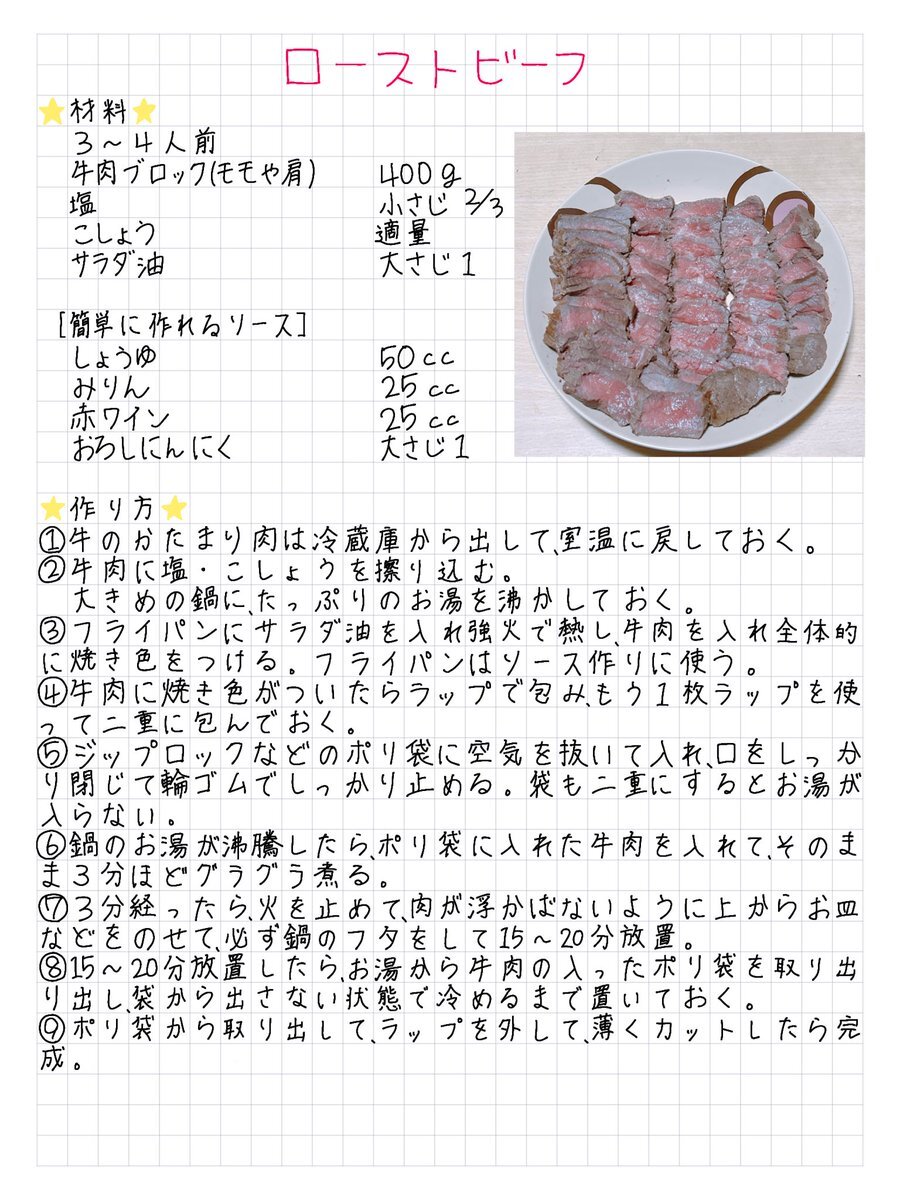 ローストビーフ
⭐材料⭐
3〜4人前
牛肉ブロック(モモや肩) 400g
塩 小さじ 2/3
こしょう 適量
サラダ油 大さじ1
[簡単に作れるソース]
しょうゆ 50cc
みりん 25cc
赤ワイン 25cc
おろしにんにく 大さじ1
⭐作り方⭐
①牛のかたまり肉は冷蔵庫から出して、室温に戻しておく。
②牛肉に塩・こしょうを擦り込む。
大きめの鍋に、たっぷりのお湯を沸かしておく。
③フライパンにサラダ油を入れ強火で熱し、牛肉を入れ全体的
に焼き色をつける。フライパンはソース作りに使う。
④牛肉に焼き色がついたらラップで包み、もう1枚ラップを使
って二重に包んでおく。
⑤ジップロックなどのポリ袋に空気を抜いて入れ、口をしっか
り閉じて輪ゴムでしっかり止める。袋も二重にするとお湯が
入らない。
⑥鍋のお湯が沸騰したら、ポリ袋に入れた牛肉を入れて、そのま
ま3分ほどグラグラ煮る。
⑦3分経ったら、火を止めて、肉が浮かばないように上からお皿
などをのせて、必ず鍋のフタをして15〜20分放置。
⑧15〜20分放置したら、お湯から牛肉の入ったポリ袋を取り出
り出し、袋から出さない状態で冷めるまで置いておく。
⑨ポリ袋から取り出して、ラップを外して、薄くカットしたら完
成。